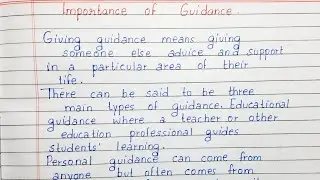 Importance of Guidance.
Giving guidance means giving
someone else advice and support
in a particular area of their
life.
There can be said to be three
main types of guidance. Educational
guidance where a teacher or other
education professional guides
students' learning.
Personal guidance can come from
anyone but often comes from